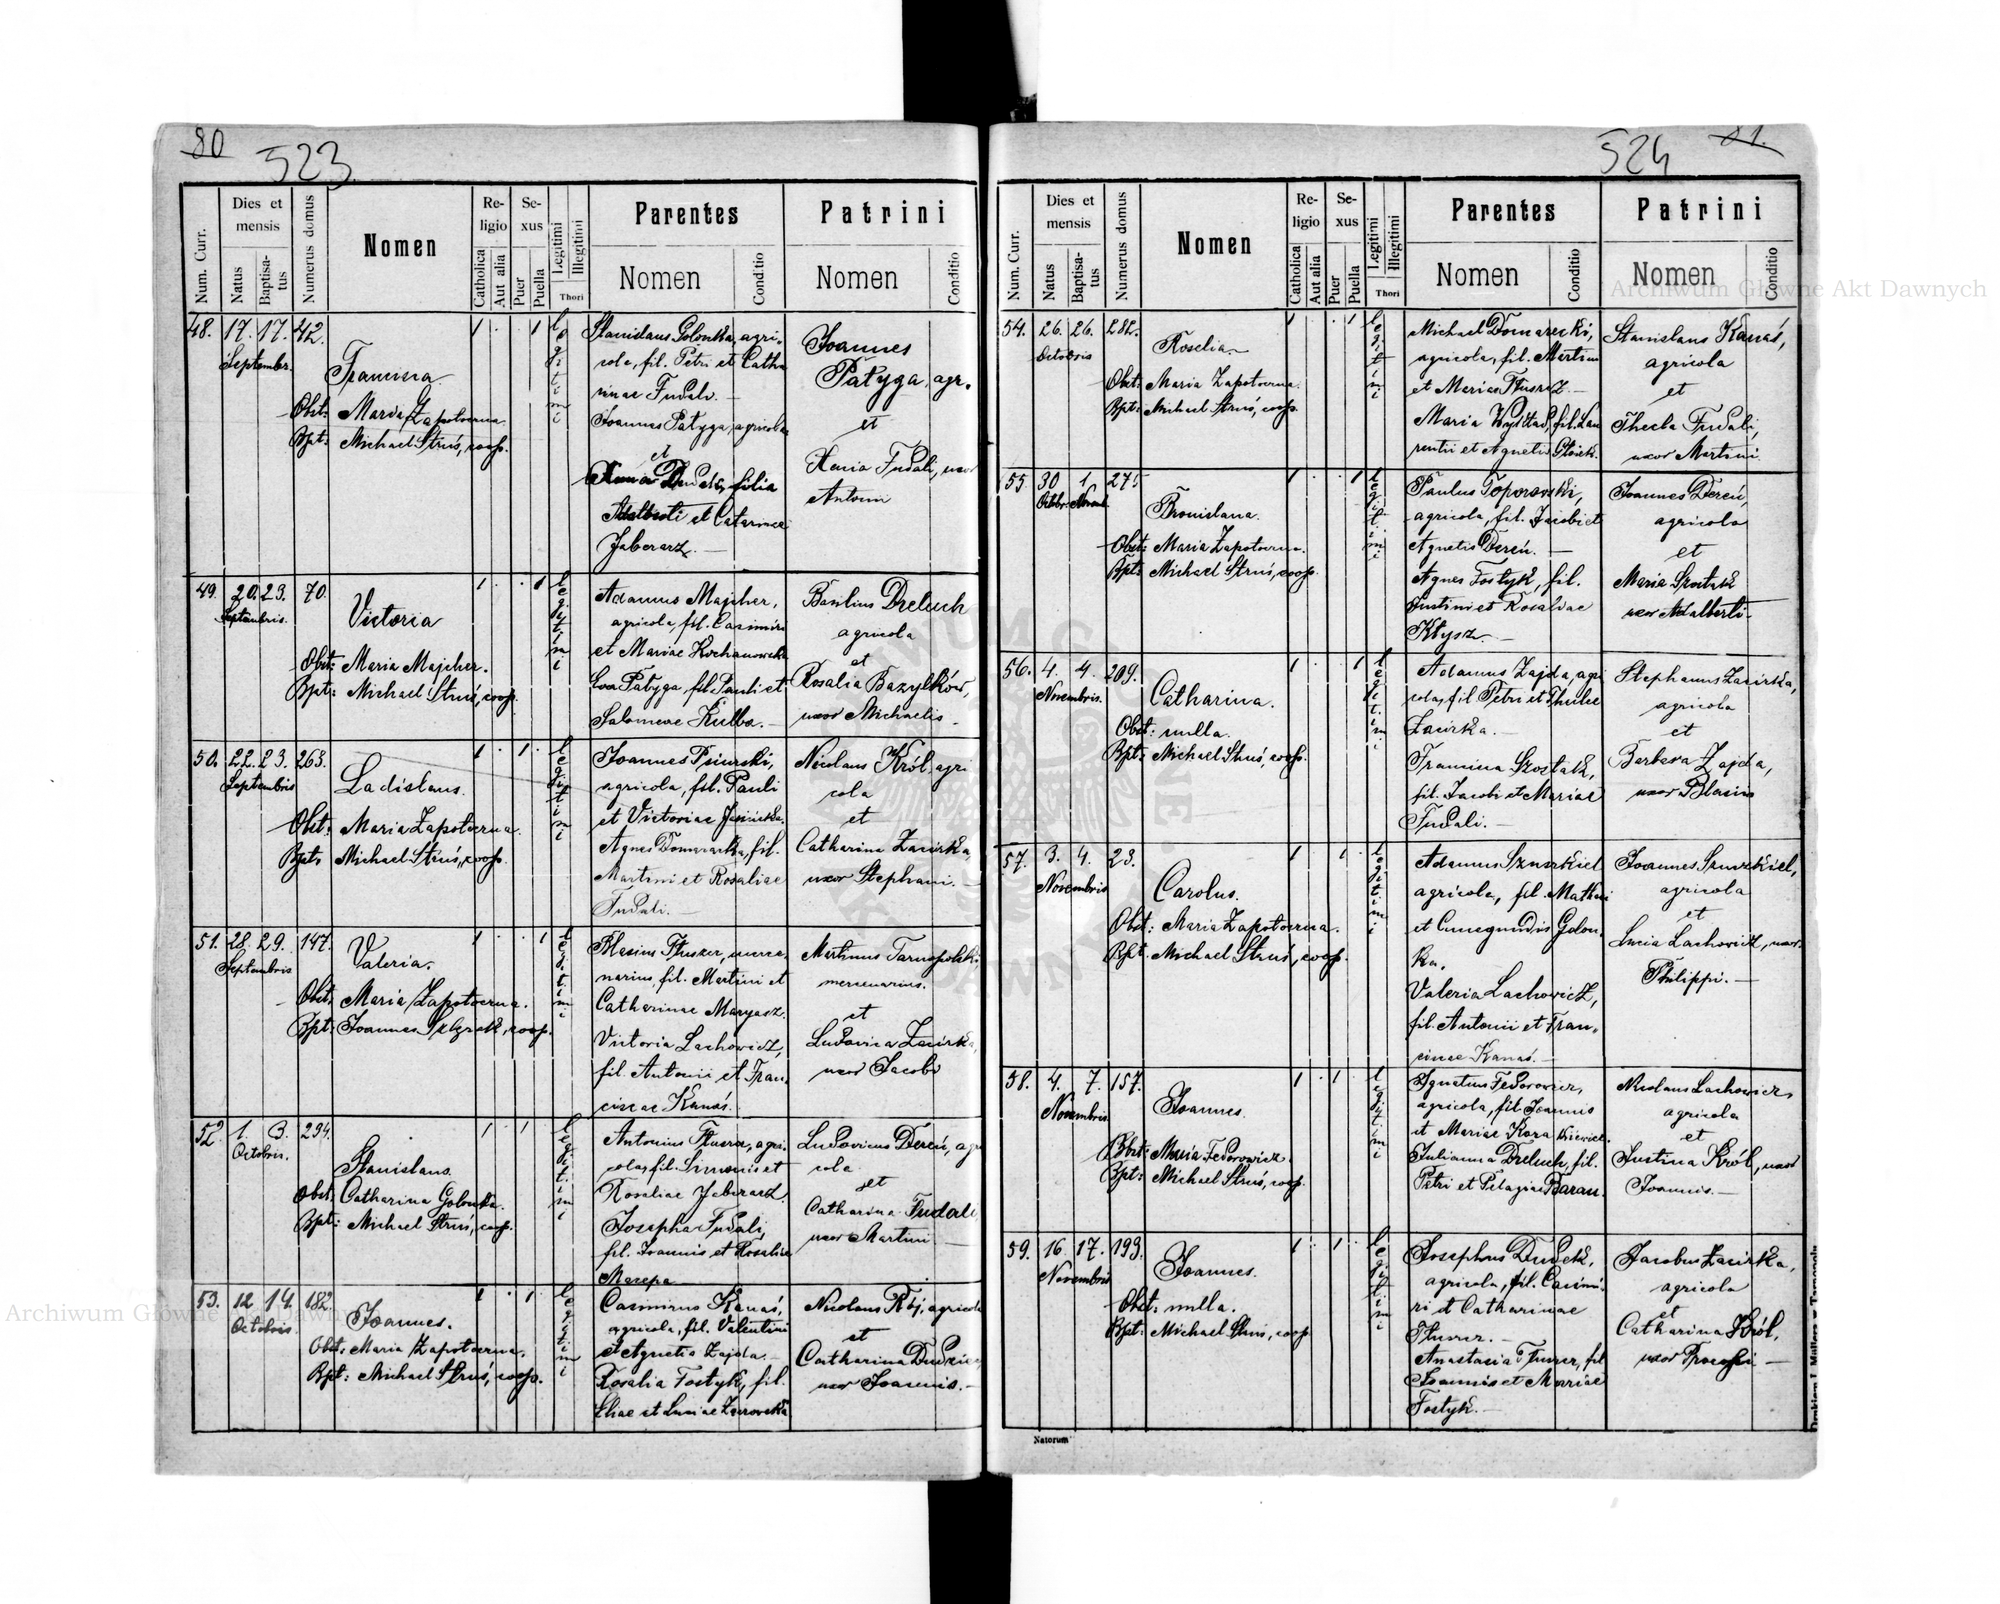 80
523
Num. Curr.
Dies et mensis
Natus
Baptisatus
Numerus domus
Nomen
Religio
Catholica
Aut alia
Sexus
Puer
Puella
Legitimi
Illegitimi
Thori
Parentes
Nomen
Conditio
Patrini
Nomen
Conditio
48. 17. 17. 42.
Septembr.
Francisca
Obst: Maria Zapotoczna.
Bpt: Michael Struś, coop.
1 1
legitimi
Stanislaus Golonka, agri-
cola, fil. Petri et Catha
rinae Fudali. —
Joannes Patyga, agricola
et
Anna Dudek, filia
Adalberti et Catarinae
Jaberarz. —
Joannes
Patyga, agr.
et
Xenia Fudali, uxor
Antoni
49. 20. 23. 70.
Septembris.
Victoria
Obst: Maria Majcher.
Bpt: Michael Struś, coop.
1 1
legitimi
Adamus Majcher,
agricola, fil. Casimiri
et Mariae Kochanowska
Eva Patyga, fil. Pauli et
Salomeae Kulba. —
Basilius Dzeluch
agricola
et
Rosalia Bazylków,
uxor Michaelis -
50. 22. 23. 263.
Septembris
Ladislaus.
Obst: Maria Zapotoczna.
Bpt: Michael Struś, coop.
1 1
legitimi
Joannes Psiurski,
agricola, fil. Pauli
et Victoriae
Agnes Domarecka, fil.
Martini et Rosaliae
Fudali. —
Nicolaus Król, agri
cola
et
Catharina Zacirka,
uxor Stephani. —
51. 28. 29. 147.
Septembris
Valeria.
Obst: Maria Zapotoczna.
Bpt: Joannes coop.
1 1
legitimi
Blasius Tłuszcz, merce.
narius, fil. Martini et
Catharinae Maryasz.
Victoria Lachowicz,
fil. Antonii et Fran.
ciscae Kanaś.
Martinus Tarnopolski
mercenarius.
et
Ludovica Zacirka,
uxor Jacobi
52. 1. 3. 294.
Octobris.
Stanislaus.
Obst: Catharina Golonka.
Bpt: Michael Struś, coop.
1 1
legitimi
Antonius Tłuszcz, agri.
cola, fil. Simonis et
Rosaliae Jaberarz.
Josepha Fudali,
fil. Joannis et Rosaliae
Mazepa
Ludovicus Dereń, agr
cola
et
Catharina Fudali,
uxor Martini —
53. 12 14. 182.
Octobris.
Joannes.
Obst: Maria Zapotoczna.
Bpt: Michael Struś, coop.
1 1
legitimi
Casimirus Kanaś,
agricola, fil. Valentini
et Agnetis Zajda. —
Rosalia Fostyk, fil.
Eliae et Luciae Zurowska
Nicolaus Rij, agricola
et
Catharina
uxor Joannis. —
81.
524
Num. Curr.
Dies et mensis
Natus
Baptisatus
Numerus domus
Nomen
Religio
Catholica
Aut alia
Sexus
Puer
Puella
Legitimi
Illegitimi
Thori
Parentes
Nomen
Conditio
Patrini
Nomen
Conditio
54. 26. 26. 282.
Octobris
Roselia
Obst: Maria Zapotoczna.
Bpt: Michael Struś, coop.
1 1
legitimi
Michael Domarecki,
agricola, fil. Martini
et Mariae Tłuszcz —
Maria fil. Lau
rentii et Agnetis
Stanislaus Kanaś,
agricola
et
Thecla Fudali,
uxor Martini.
55 30 1. 275
Octobr. Novemb.
Bronislava.
Obst: Maria Zapotoczna.
Bpt: Michael Struś, coop.
1 1
legitimi
Paulus Toporowski,
agricola, fil. Jacobi et
Agnetis Dereń. —
Agnes Fostyk, fil.
Justini et Rosaliae
Kłysz. —
Joannes Dereń,
agricola
et
Maria Szostak
uxor Adalberti -
56. 4. 4. 209.
Novembris.
Catharina.
Obst: nulla.
Bpt: Michael Struś, coop.
1 1
legitimi
Adamus Zajda, agri
cola, fil Petri et Theclae
Zacirka. —
Francisca Szostak,
fil. Jacobi et Mariae
Fudali. —
Stephanus Zacirka,
agricola
et
Barbara Zajda,
uxor Blasii
57. 3. 4. 23.
Novembris
Carolus.
Obst: Maria Zapotoczna.
Bpt: Michael Struś, coop.
1 1
legitimi
Adamus Sznurkiel
agricola, fil. Mathei
et Cunegundis Golon.
ka.
Valeria Lachowicz,
fil. Antonii et Fran.
ciscae Kanaś. —
Joannes
agricola
et
Lucia Lachowicz, uxor
Philippi. —
58. 4. 7. 157.
Novembris.
Joannes.
Obst: Maria Fedorowicz.
Bpt: Michael Struś, coop.
1 1
legitimi
Ignatius Fedorowicz,
agricola, fil. Joannis
et Mariae
Julianna Dzeluch, fil.
Petri et Pelagiae Baran.
Nicolaus Lachowicz
agricola
et
Justina Król, uxor
Joannis. —
59. 16. 17. 193.
Novembris
Joannes.
Obst: nulla.
Bpt: Michael Struś, coop
1 1
legitimi
Josephus Dudek,
agricola, fil. Casimi-
ri et Catharinae
Tłuszcz. —
Anastasia Tłuszcz, fil
Joannis et Mariae
Fostyk. —
Jacobus Zacirka,
agricola
et
Catharina Król,
uxor Procopii —
Natorum
Archiwum Główne Akt Dawnych
Archiwum Główne Akt Dawnych